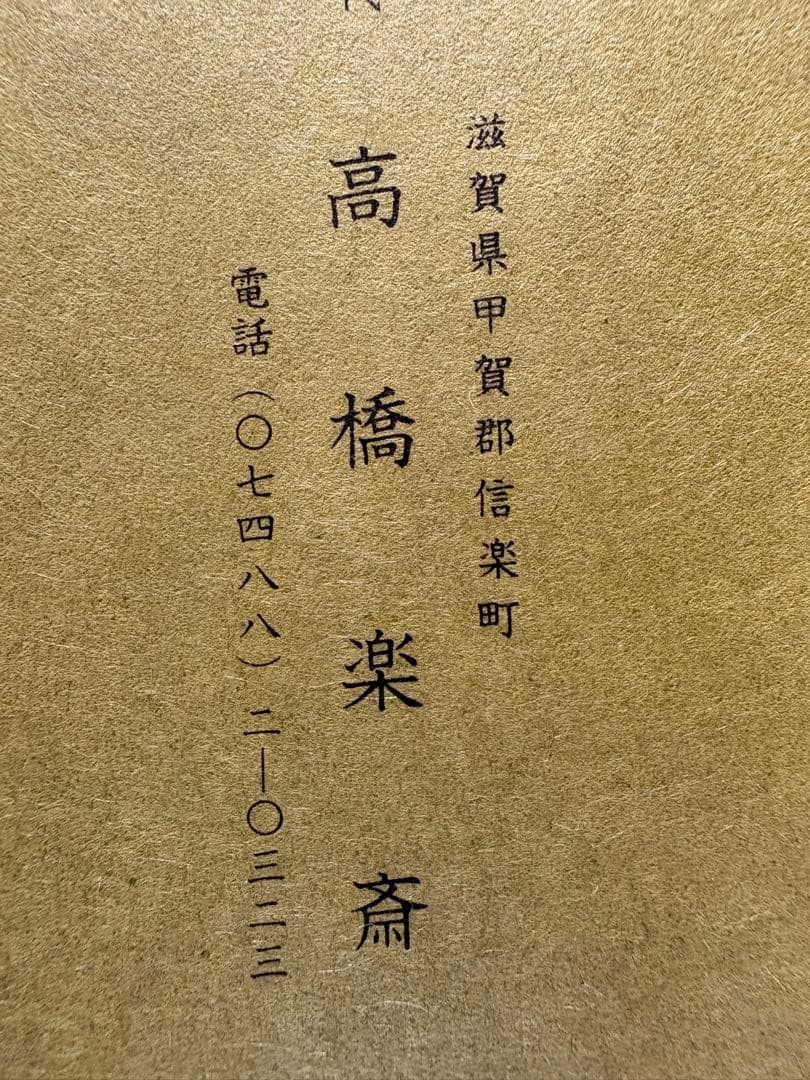 滋賀県甲賀郡信楽町
高橋楽斎
電話(〇七四八八)二―〇三二三